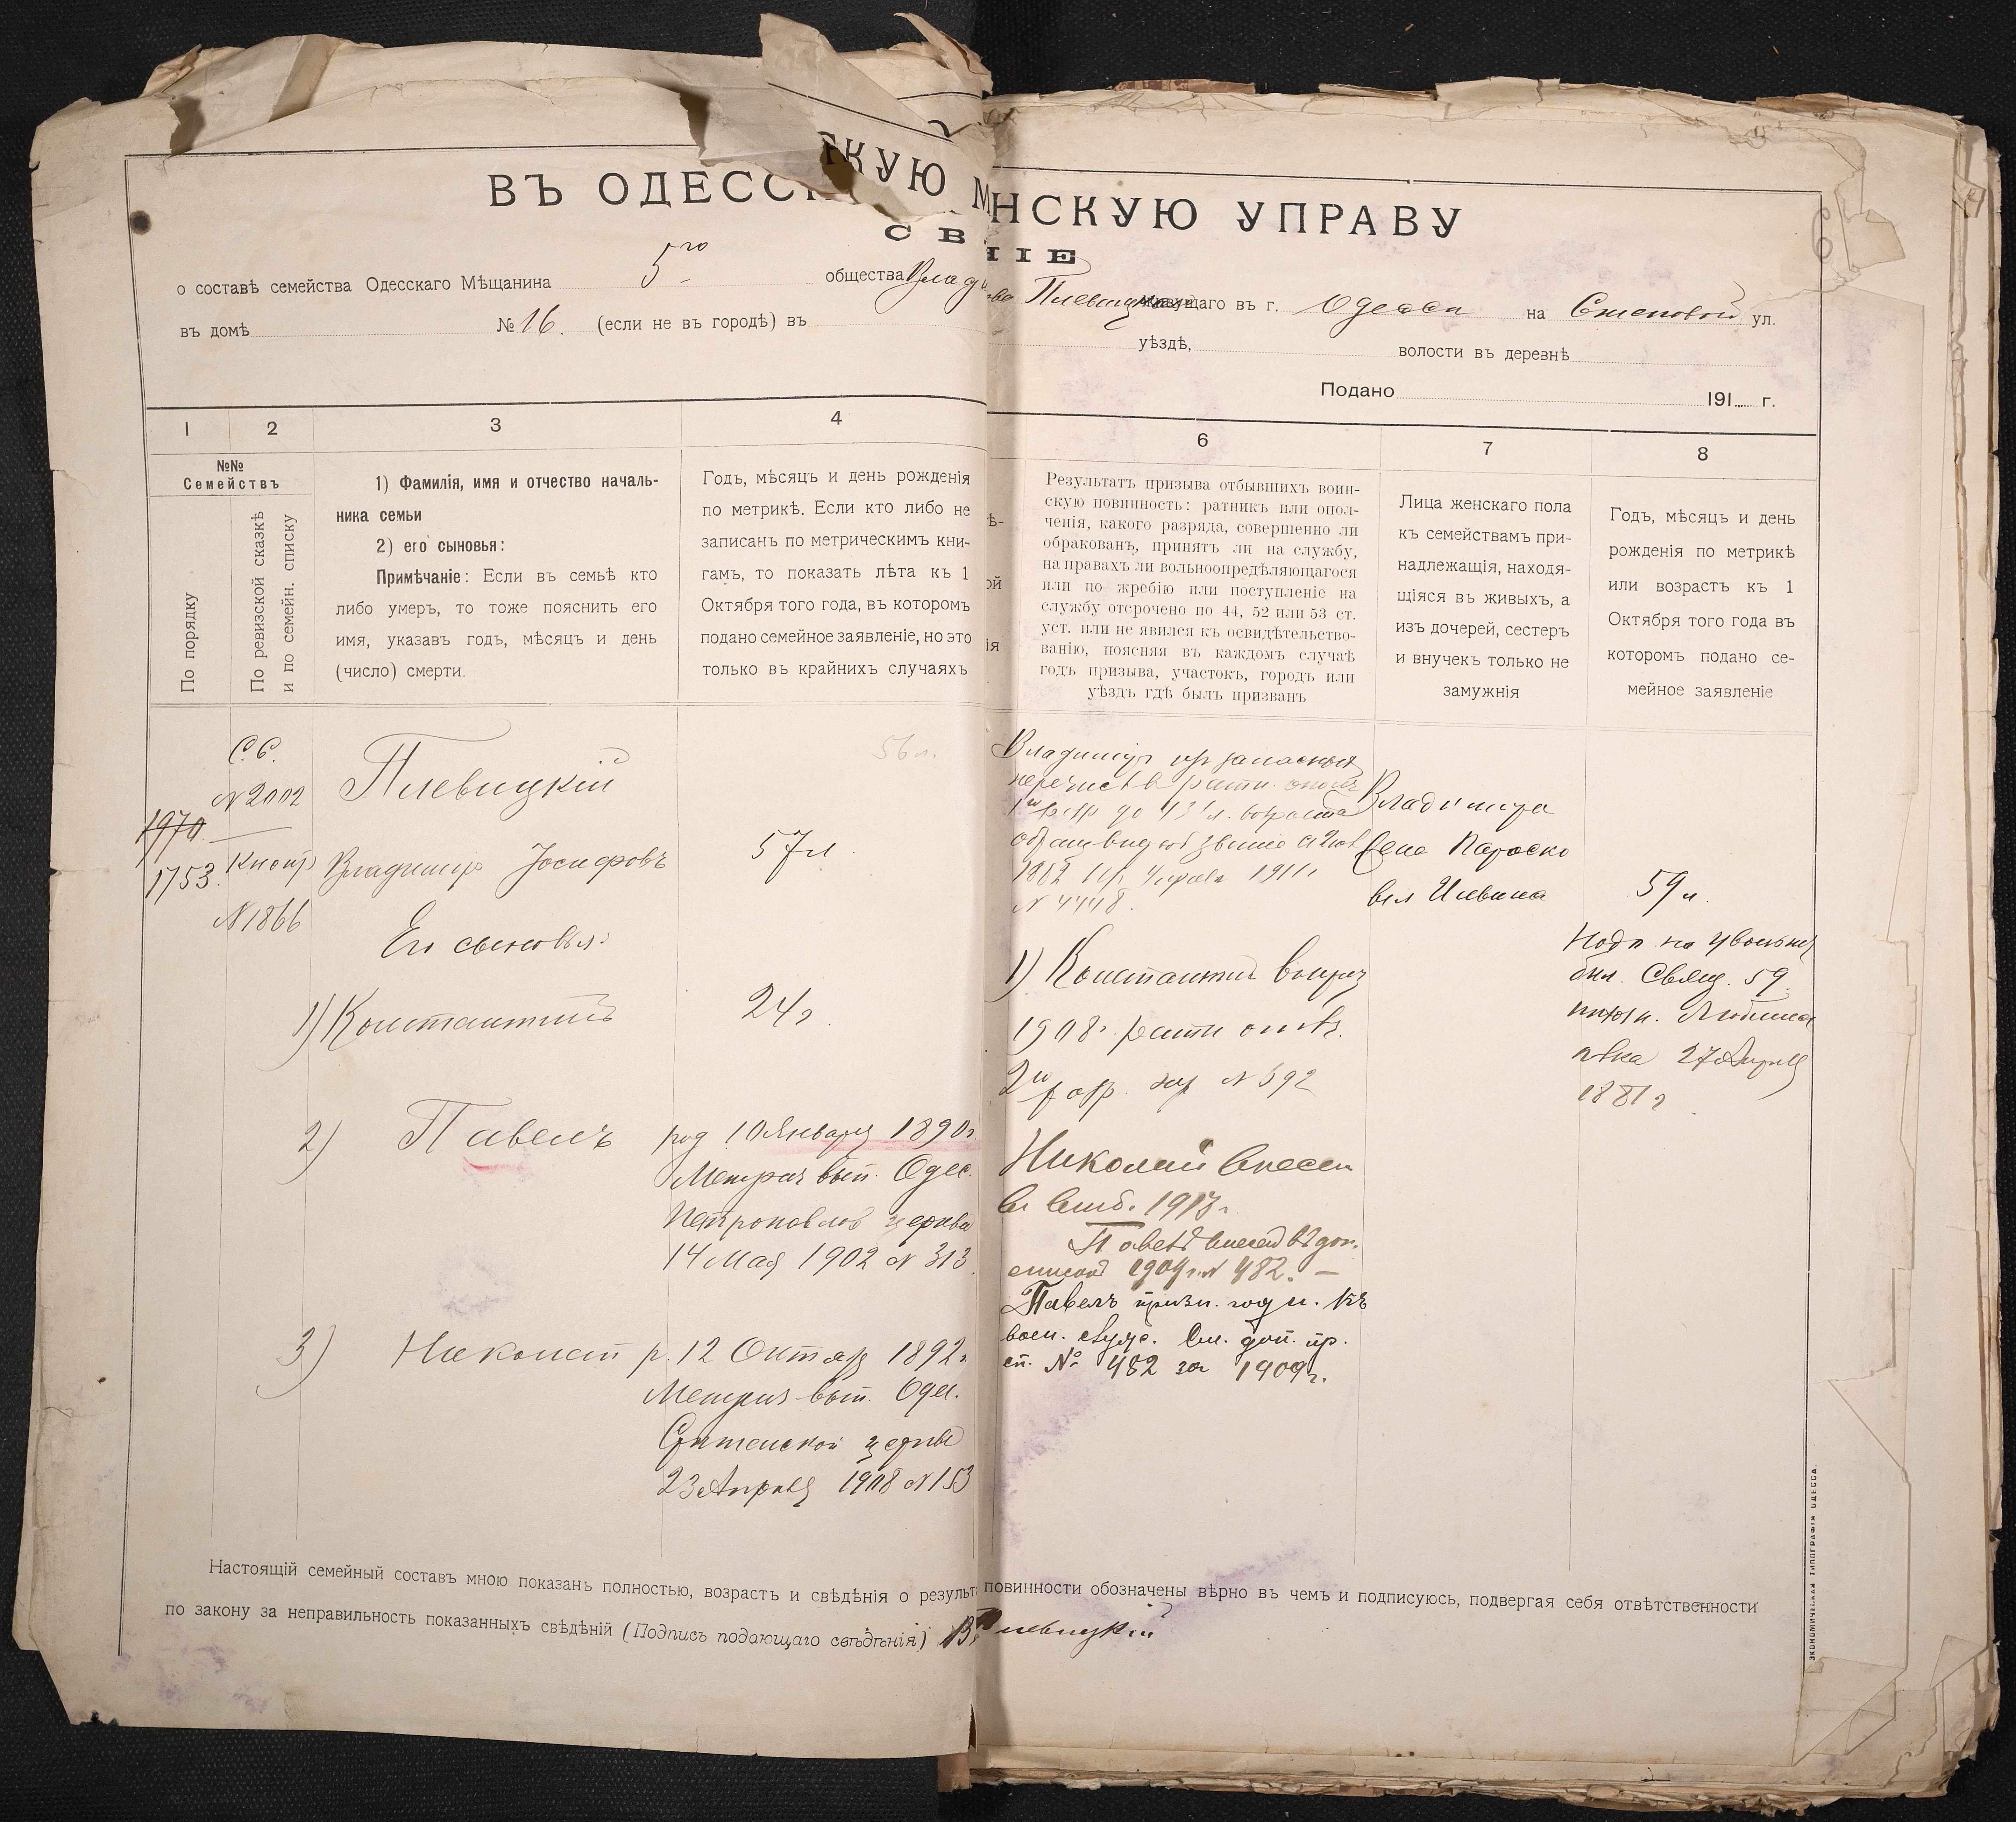 ВЪ ОДЕССК КУЮ М НСКУЮ УПРАВУ
СВ НІЕ
о составѣ семейства Одесскаго Мѣщанина 5го общества Влад Плевицк живущаго въ г. Одесса на Степовой ул.
въ домѣ № 16. (если не въ городѣ) въ уѣздѣ, волости въ деревнѣ
Подано 191 г.
1 2 3 4 6 7 8
№№
Семействъ
По порядку
По ревизской сказкѣ
и по семейн. списку
1) Фамилія, имя и отчество началь-
ника семьи
2) его сыновья:
Примѣчаніе: Если въ семьѣ кто
либо умеръ, то тоже пояснить его
имя, указавъ годъ, мѣсяцъ и день
(число) смерти.
Годъ, мѣсяцъ и день рожденія
по метрикѣ. Если кто либо не
записанъ по метрическимъ кни-
гамъ, то показать лѣта къ 1
Октября того года, въ которомъ
подано семейное заявленіе, но это
только въ крайнихъ случаяхъ
Результатъ призыва отбывшихъ воин-
скую повинность: ратникъ или опол-
ченія, какого разряда, совершенно ли
обракованъ, принятъ ли на службу,
на правахъ ли вольноопредѣляющагося
или по жребію или поступленіе на
службу отсрочено по 44, 52 или 53 ст.
уст. или не явился къ освидѣтельство-
ванію, поясняя въ каждомъ случаѣ
годъ призыва, участокъ, городъ или
уѣздъ гдѣ былъ призванъ
Лица женскаго пола
къ семействамъ при-
надлежащія, находя-
щіяся въ живыхъ, а
изъ дочерей, сестеръ
и внучекъ только не
замужнія
Годъ, мѣсяцъ и день
рожденія по метрикѣ
или возрастъ къ 1
Октября того года въ
которомъ подано се-
мейное заявленіе
С.С.
N 2002
1970
1753.
N 1866
Плевицкій
56 л.
Владиміръ Іосифовъ
57 л
Его сыновья:
1) Константинъ
24 г.
2) Павелъ
род 10 Января 1890 г
Метрич вып. Одес.
Петропавлов церкви
14 Мая 1902 N 313
3) Николай
р. 12 Октяб 1892 г
Метрич вып. Одес.
Срѣтенской церкви
23 Апрѣля 1908 N 153
Владиміръ изъ запасныхъ
до 43 л. возраста
1911 г
N 4448.
1) Константинъ
1908 г. ратн ополч.
2го разр. N 592
Николай внесен
в 1913 г.
Павелъ внесенъ въ доп.
списокъ 1909 г. N 482. —
Павелъ призн. годн. къ
воен. служ. См. доп. пр.
сп. № 482 за 1909 г.
Владимира
жена Параске
59 л.
59
27 Апрѣля
1881 г
Настоящій семейный составъ мною показанъ полностью, возрастъ и свѣдѣнія о результ повинности обозначены вѣрно въ чемъ и подписуюсь, подвергая себя отвѣтственности
по закону за неправильность показанныхъ свѣдѣній (Подпись подающаго свѣдѣнія) В Плевицкій
ЭКОНОМИЧЕСКАЯ ТИПОГРАФІЯ ОДЕССА.